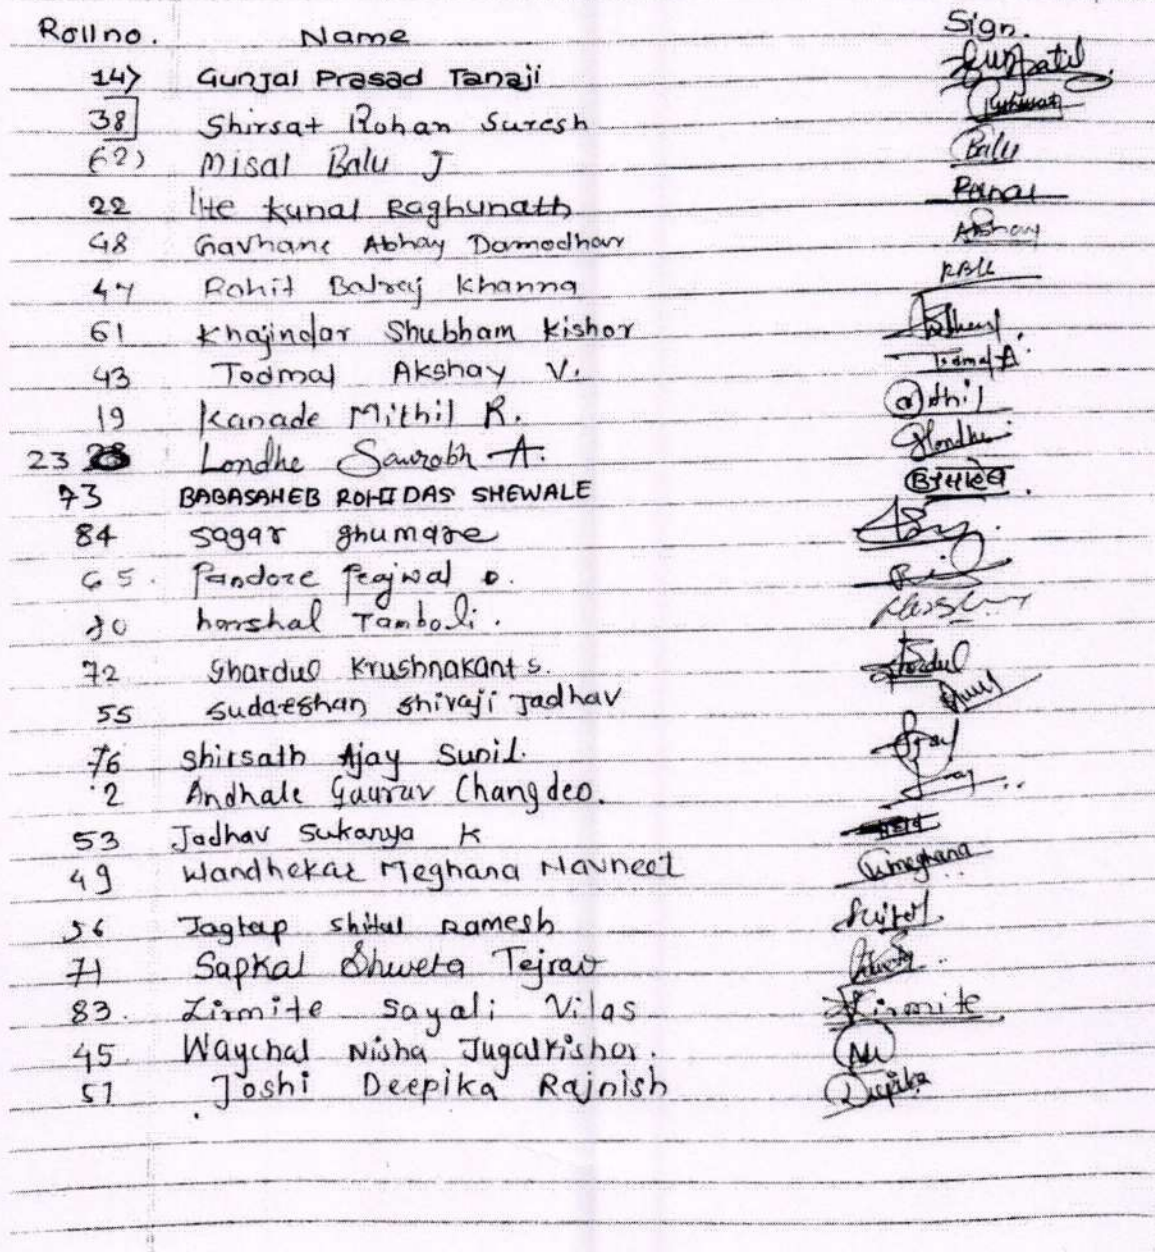 Rollno. Name Sign.
14) Gunjal Prasad Tanaji
38 Shirsat Rohan Suresh
62) Misal Balu J Balu
22 Ite Kunal Raghunath
48 Gavhane Abhay Damodhar Abhay
47 Rohit Balraj Khanna RBK
61 Khajindar Shubham Kishor
43 Todmal Akshay V. Todmal A
19 Kanade Mithil R.
23 Londhe Saurabh A. Londhe
73 BABASAHEB ROHIDAS SHEWALE
84 Sagar ghumare
65. Pandore Prajwal D.
80 harshal Tamboli.
72 Shardul Krushnakant S. Shardul
55 Sudarshan Shivaji Jadhav
76 Shirsath Ajay Sunil.
2 Andhale Gaurav Changdeo.
53 Jadhav Sukanya K
49 Wandhekar Meghana Navneet Meghana
56 Jagtap Shital Ramesh
71 Sapkal Shweta Tejrao
83. Zirmite Sayali Vilas Zirmite
45 Waychal Nisha Jugalkishor.
57 Joshi Deepika Rajnish Deepika